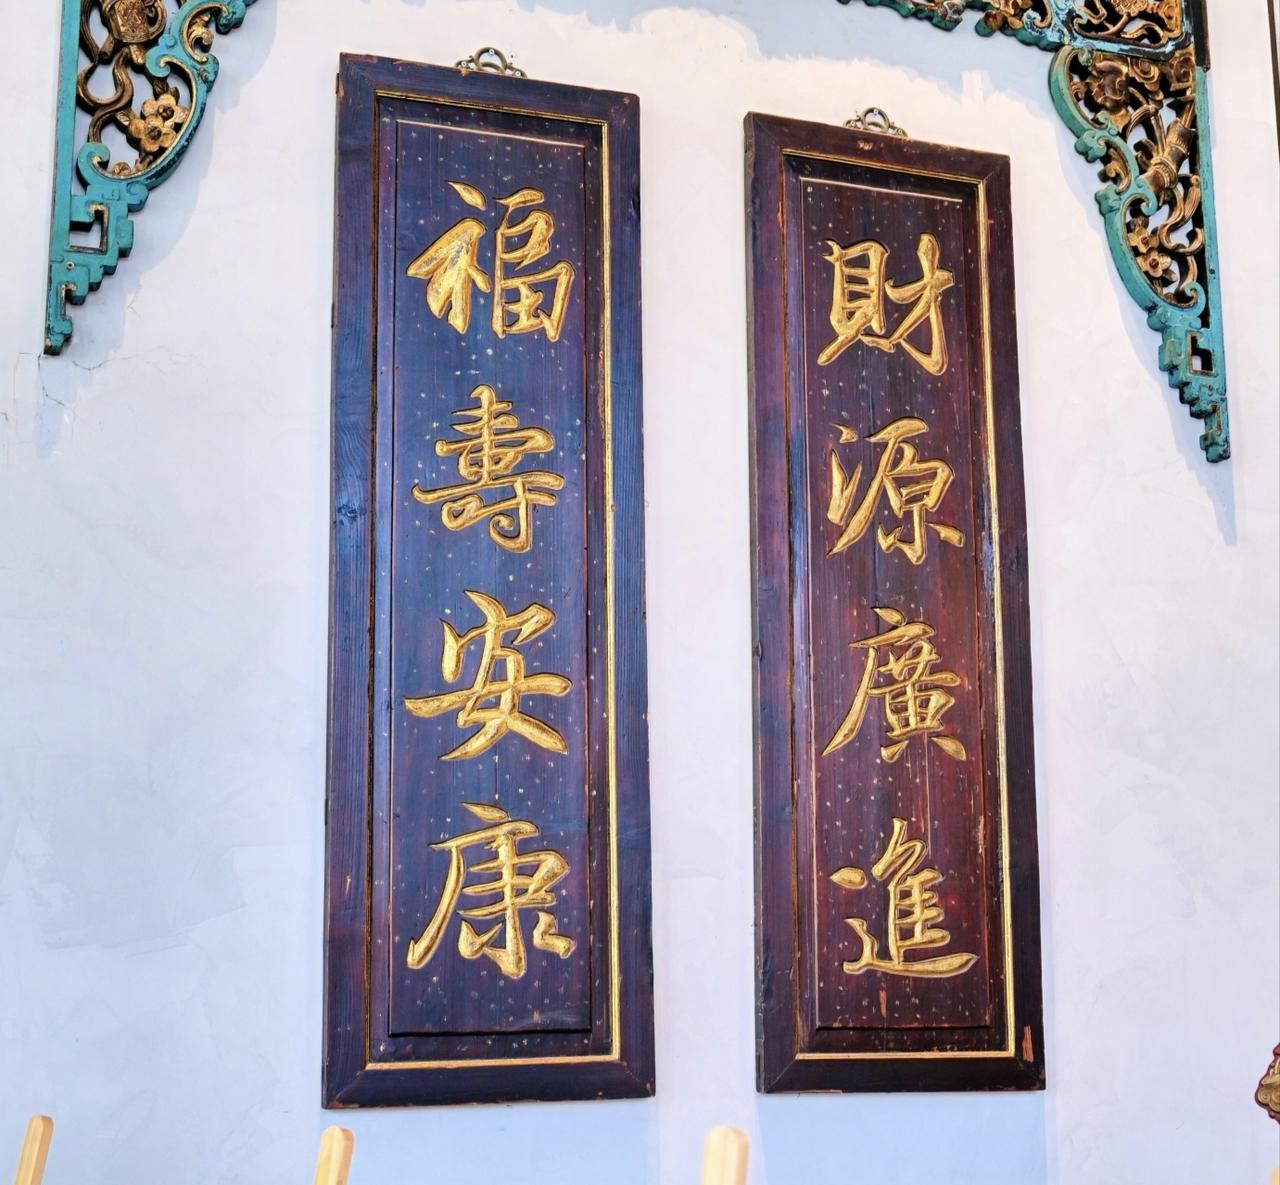 財源廣進
福壽安康